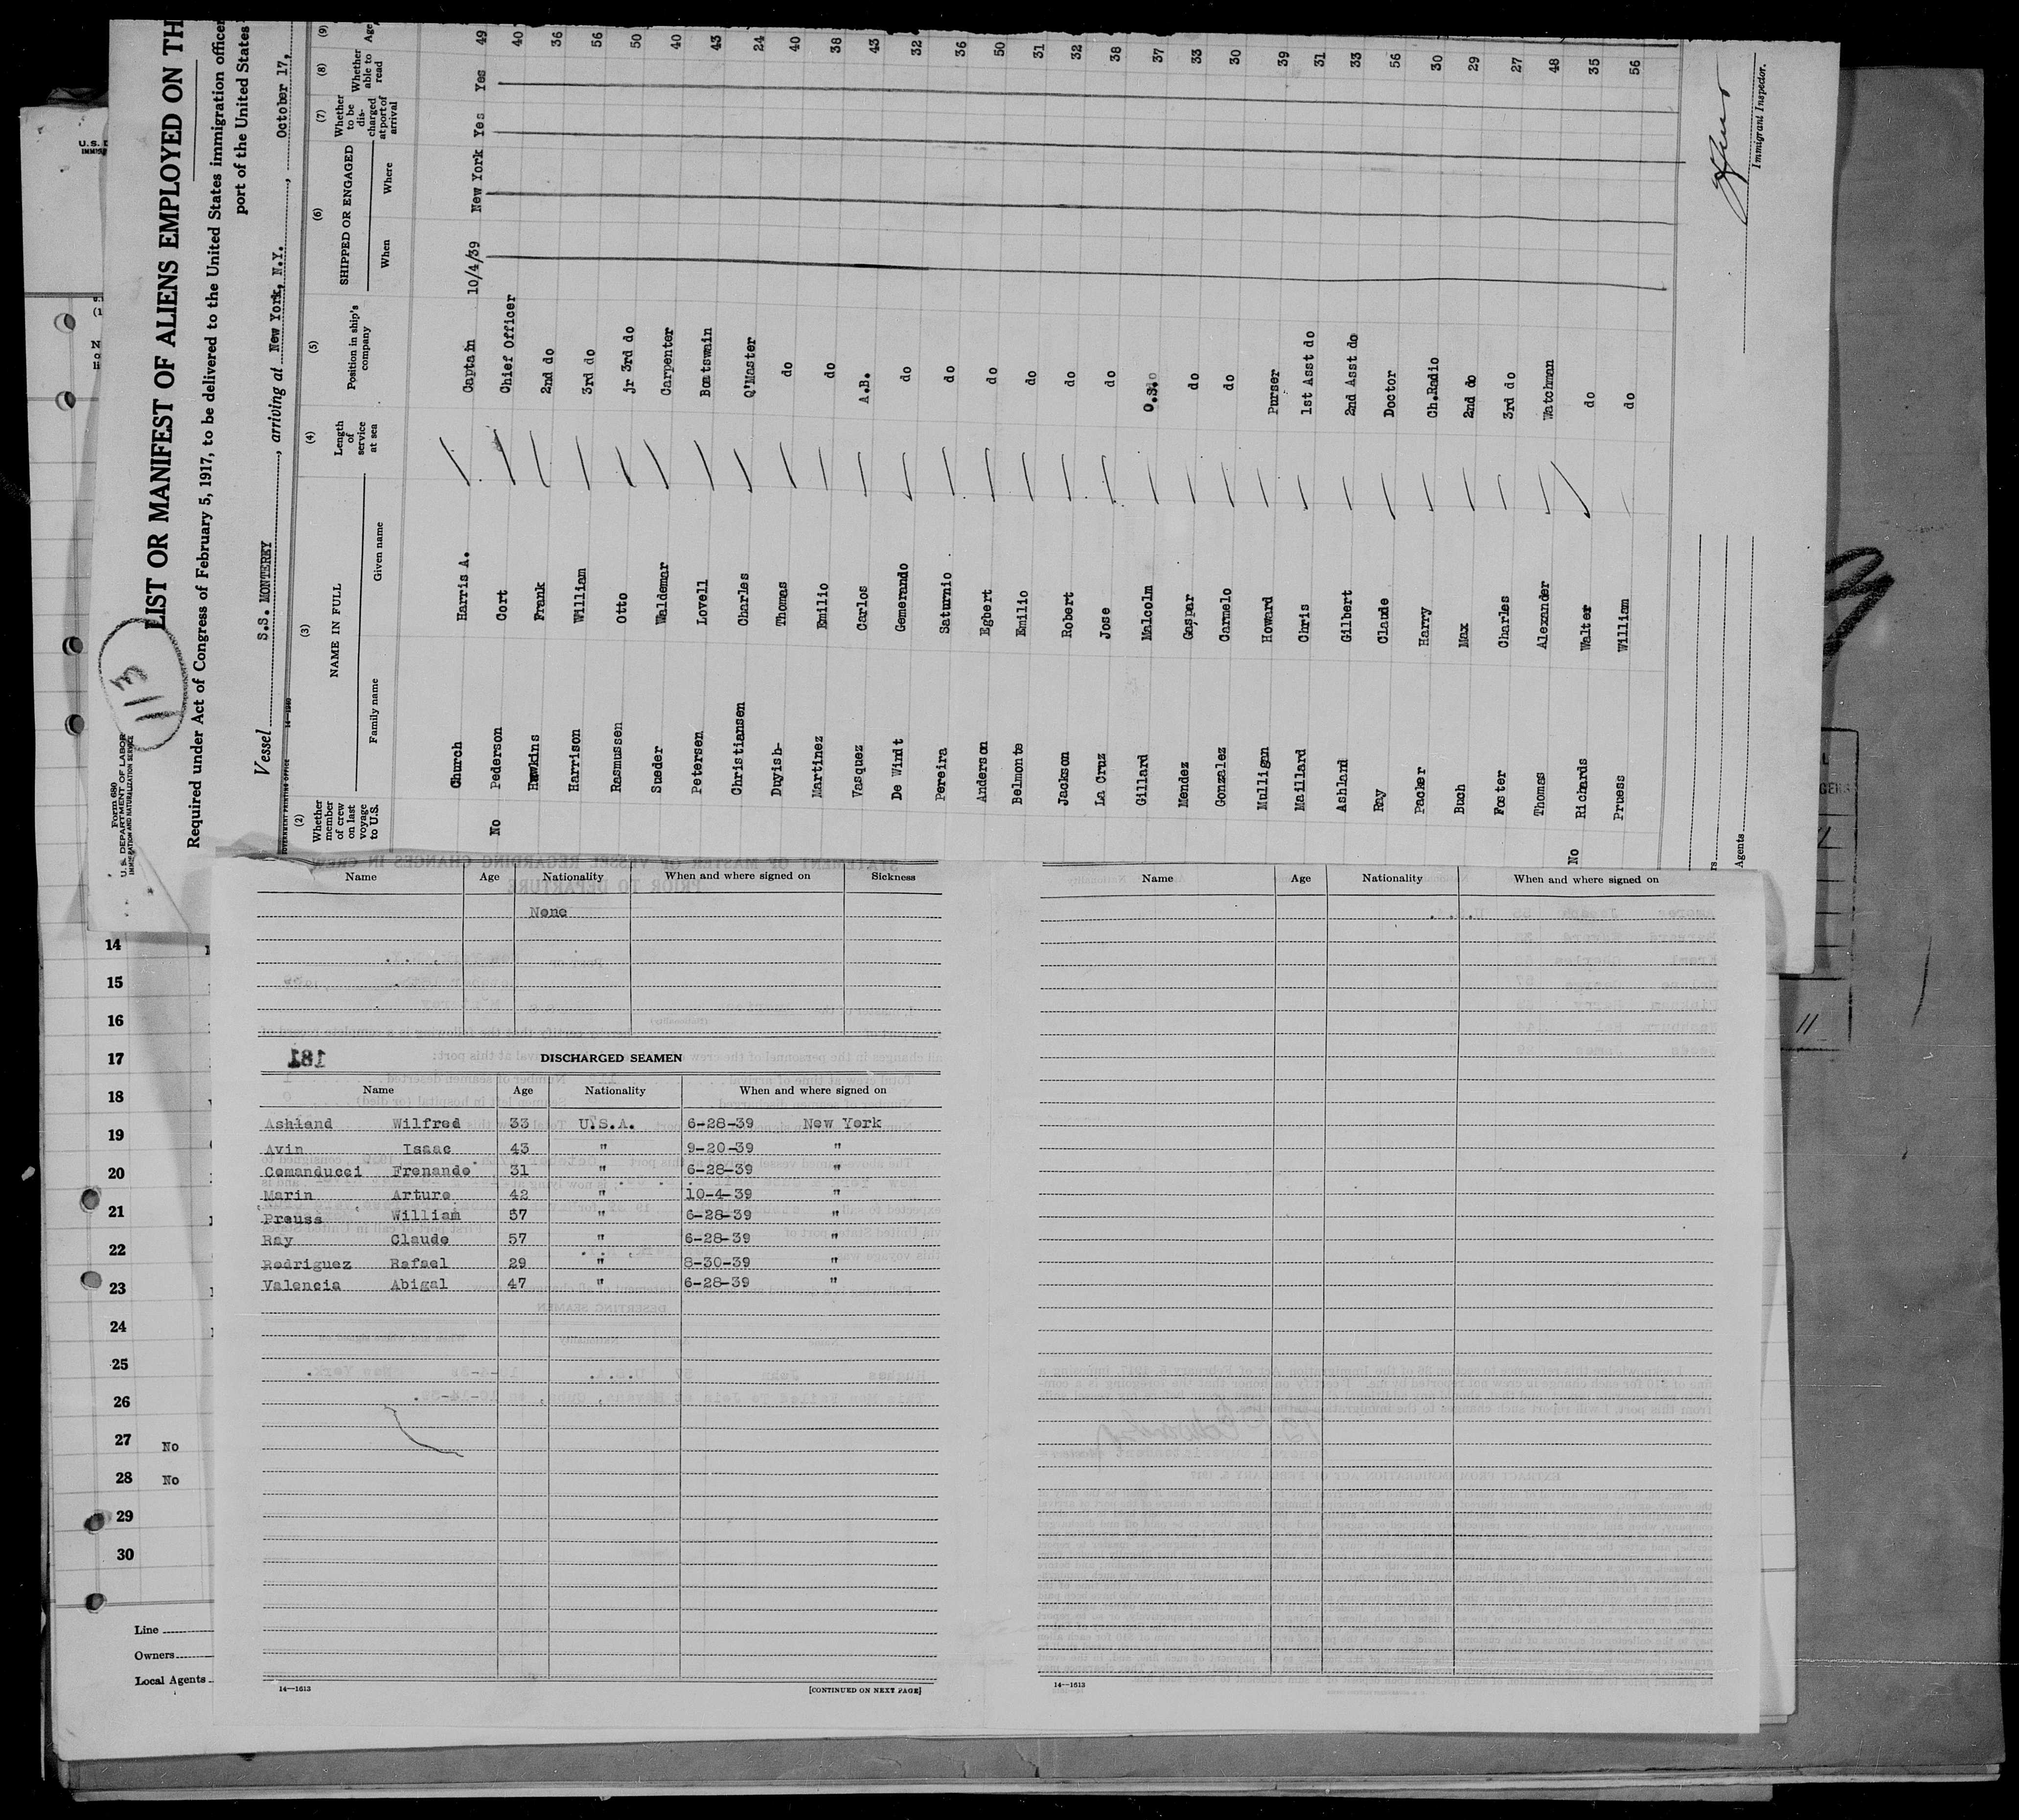 Form 680
U. S. DEPARTMENT OF LABOR
IMMIGRATION AND NATURALIZATION SERVICE
113
LIST OR MANIFEST OF ALIENS EMPLOYED ON TH
Required under Act of Congress of February 5, 1917, to be delivered to the United States immigration officer
port of the United States
Vessel S.S. MONTEREY, arriving at New York, N.Y., October 17,
GOVERNMENT PRINTING OFFICE 14—1240
(2) (3) (4) (5) (6) (7) (8) (9)
Whether member of crew on last voyage to U.S. NAME IN FULL Length of service at sea Position in ship's company SHIPPED OR ENGAGED Whether to be discharged at port of arrival Whether able to read Age
Family name Given name When Where
Church Harris A. Captain 10/4/39 New York Yes Yes 49
No Pederson Cort Chief Officer 40
Hawkins Frank 2nd do 36
Harrison William 3rd do 56
Rasmussen Otto jr 3rd do 50
Sueder Waldemar Carpenter 40
Petersen Lovell Boatswain 43
Christiansen Charles Q'Master 24
Duyish- Thomas do 40
Martinez Emilio do 38
Vasquez Carlos A.B. 43
De Windt Gemerando do 32
Pereira Saturnio do 36
Anderson Egbert do 50
Belmonte Emilio do 31
Jackson Robert do 32
La Cruz Jose do 38
Gillard Malcolm O.S. 37
Mendez Gaspar do 33
Gonzalez Carmelo do 30
Mulligan Howard Purser 39
Maillard Chris 1st Asst do 31
Ashland Gilbert 2nd Asst do 33
Ray Claude Doctor 56
Packer Harry Ch.Radio 30
Buch Max 2nd do 29
Foster Charles 3rd do 27
Thomas Alexander Watchman 48
No Richards Walter do 35
Pruess William do 56
Agents
Immigrant Inspector.
Name Age Nationality When and where signed on Sickness
None
181
DISCHARGED SEAMEN
Name Age Nationality When and where signed on
Ashland Wilfred 33 U.S.A. 6-28-39 New York
Avin Isaac 43 " 9-20-39 "
Comanducci Frenando 31 " 6-28-39 "
Marin Arturo 42 " 10-4-39 "
Preuss William 57 " 6-28-39 "
Ray Claude 57 " 6-28-39 "
Rodriguez Rafael 29 " 8-30-39 "
Valencia Abigal 47 " 6-28-39 "
14—1613
[CONTINUED ON NEXT PAGE]
Name Age Nationality When and where signed on
14—1613
14
15
16
17
18
19
20
21
22
23
24
25
26
27 No
28 No
29
30
Line
Owners
Local Agents
11